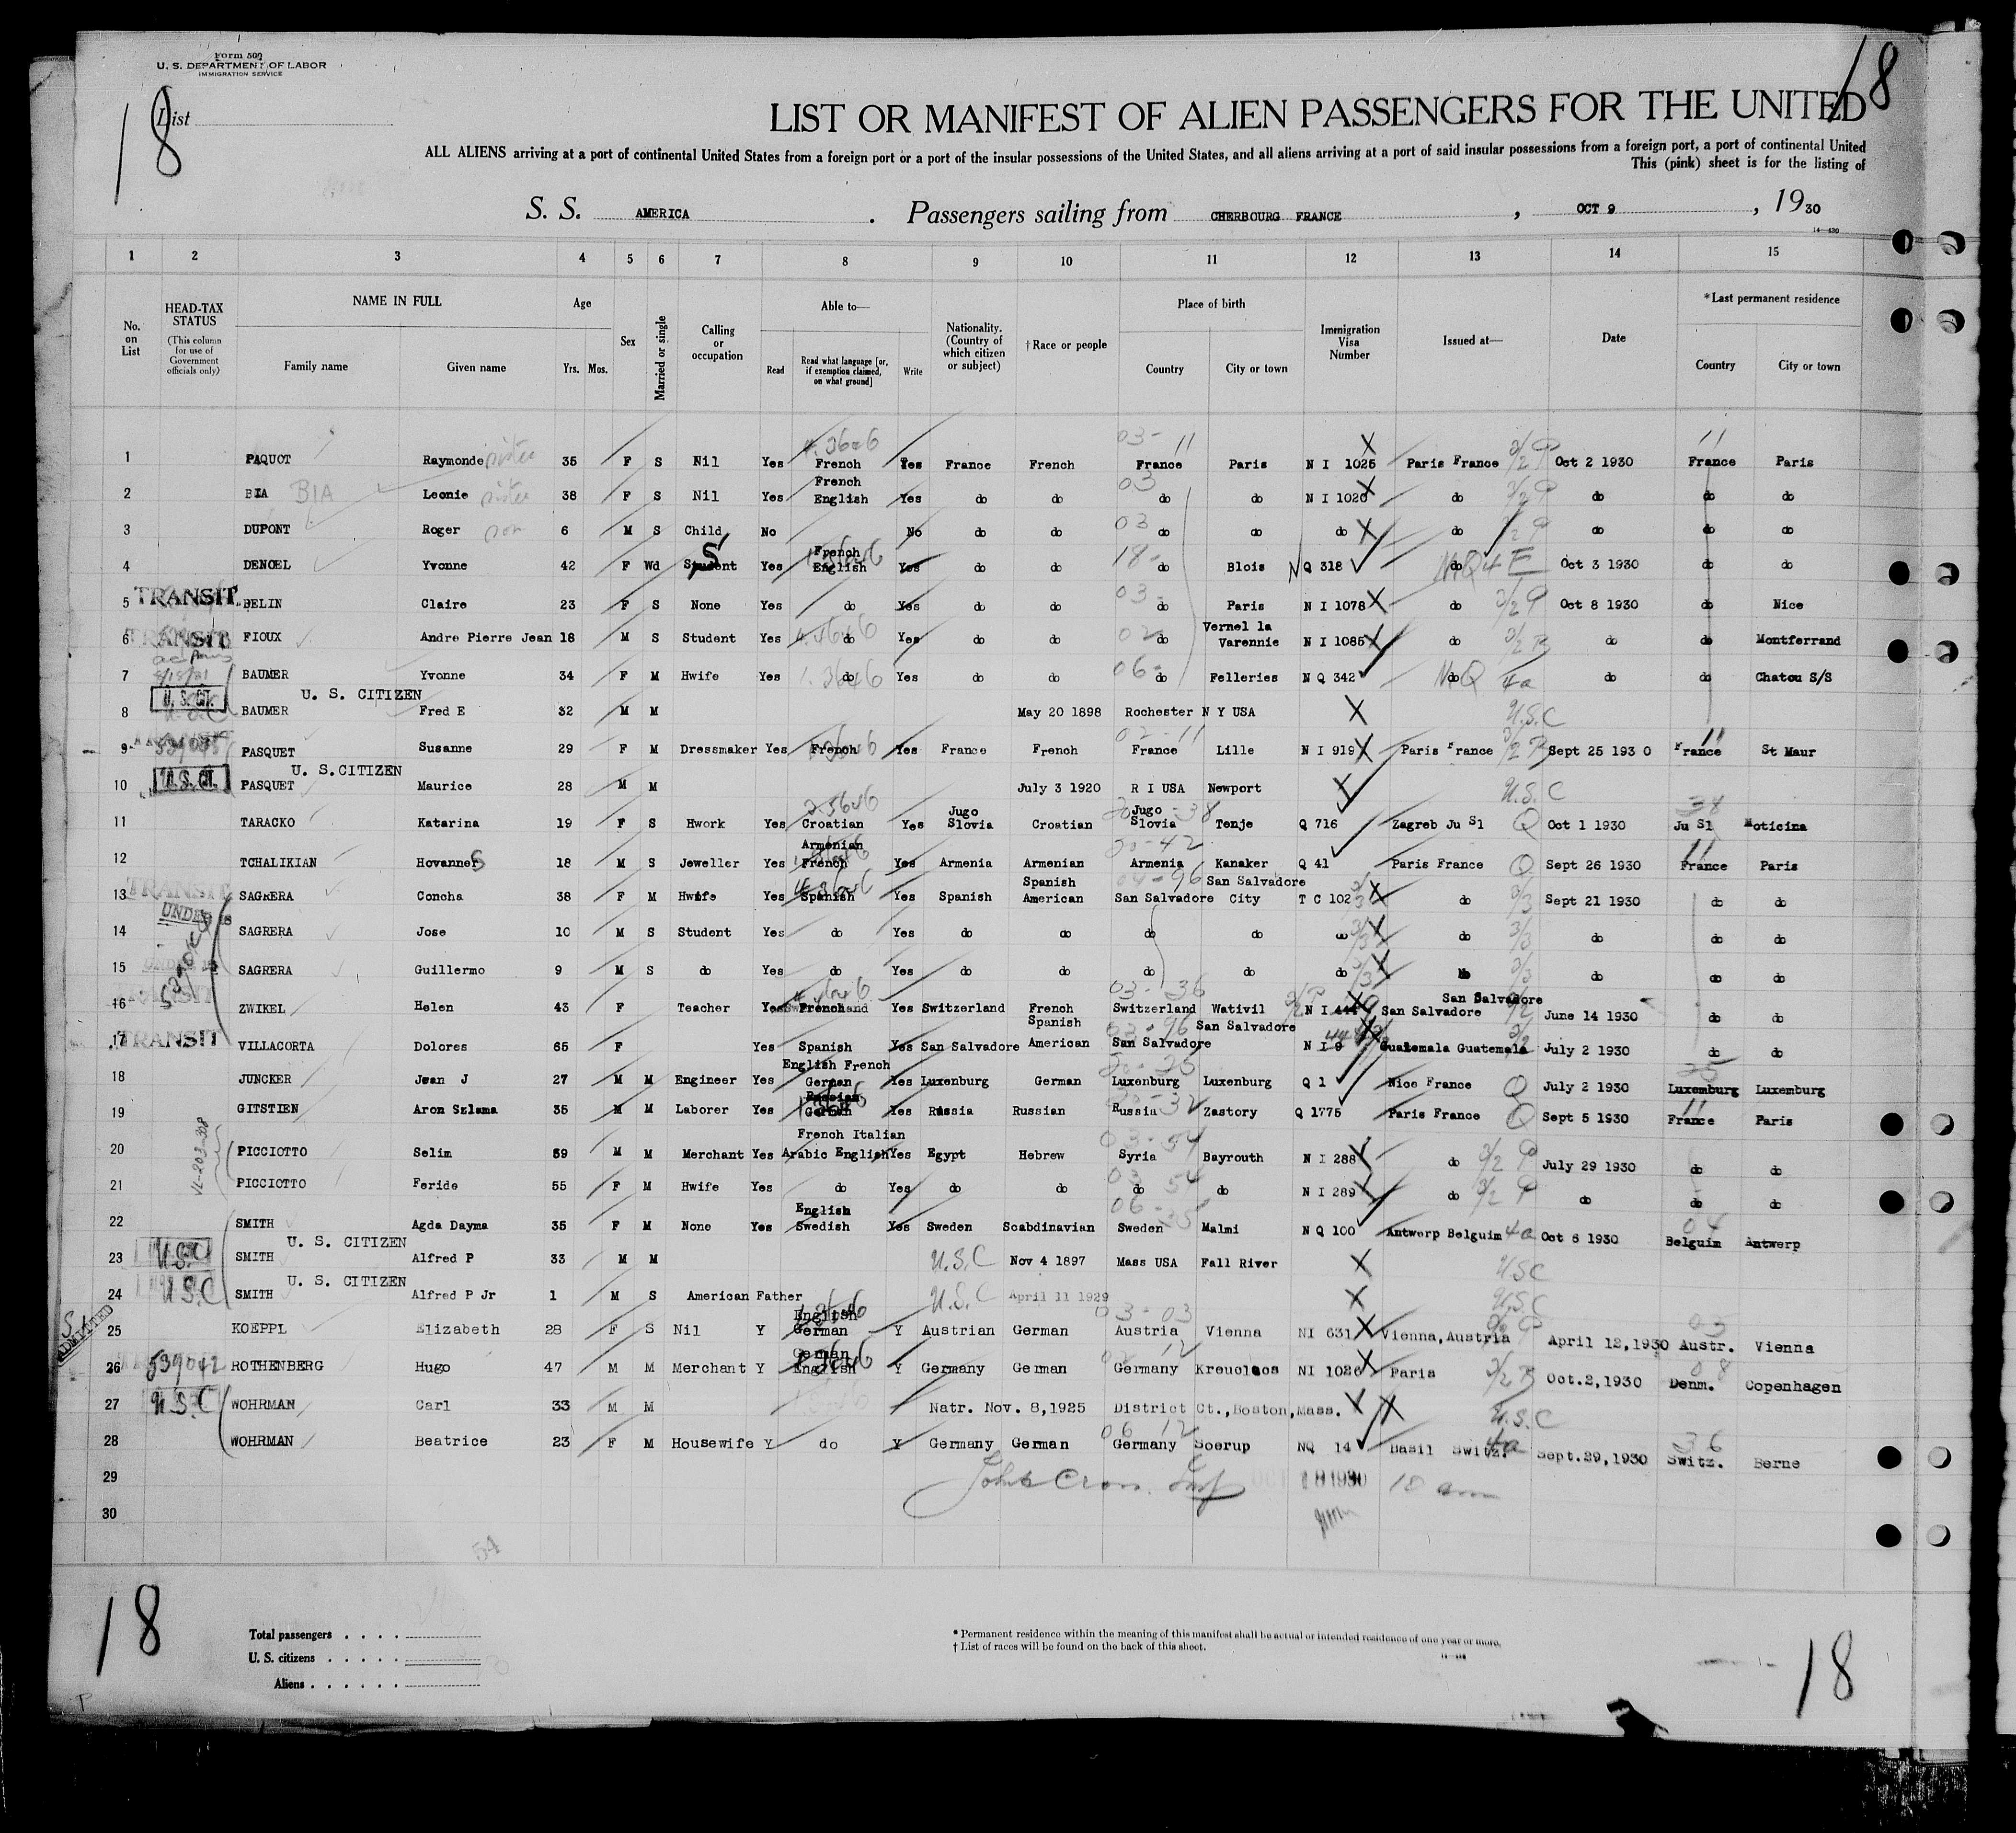 Form 500
U. S. DEPARTMENT OF LABOR
IMMIGRATION SERVICE
18
List
18
LIST OR MANIFEST OF ALIEN PASSENGERS FOR THE UNITED
ALL ALIENS arriving at a port of continental United States from a foreign port or a port of the insular possessions of the United States, and all aliens arriving at a port of said insular possessions from a foreign port, a port of continental United
This (pink) sheet is for the listing of
S. S. AMERICA . Passengers sailing from CHERBOURG FRANCE , OCT 9 , 1930
1 2 3 4 5 6 7 8 9 10 11 12 13 14 15
No. on List
HEAD-TAX STATUS (This column for use of Government officials only)
NAME IN FULL Family name Given name
Age Yrs. Mos.
Sex
Married or single
Calling or occupation
Able to— Read Read what language [or, if exemption claimed, on what ground] Write
Nationality. (Country of which citizen or subject)
†Race or people
Place of birth Country City or town
Immigration Visa Number
Issued at—
Date
*Last permanent residence Country City or town
1 PAQUOT Raymonde sister 35 F S Nil Yes French Yes France French France Paris N I 1025 Paris France Oct 2 1930 France Paris
2 BIA BIA Leonie sister 38 F S Nil Yes French English Yes do do do do N I 1020 do do do do
3 DUPONT Roger son 6 M S Child No No do do do do do do do do do
4 DENOEL Yvonne 42 F Wd Student Yes French English Yes do do do Blois NQ 318 do Oct 3 1930 do do
5 TRANSIT BELIN Claire 23 F S None Yes do Yes do do do Paris N I 1078 do Oct 8 1930 do Nice
6 TRANSIT FIOUX Andre Pierre Jean 18 M S Student Yes do Yes do do do Vernel la Varennie N I 1085 do do do Montferrand
7 BAUMER Yvonne 34 F M Hwife Yes do Yes do do do Felleries N Q 342 do do do Chatou S/S
8 U. S. CIT. BAUMER U. S. CITIZEN Fred E 32 M M May 20 1898 Rochester N Y USA U.S.C
9 PASQUET Susanne 29 F M Dressmaker Yes French Yes France French France Lille N I 919 Paris France Sept 25 193 0 France St Maur
10 U. S. CIT. PASQUET U. S.CITIZEN Maurice 28 M M July 3 1920 R I USA Newport U.S.C
11 TARACKO Katarina 19 F S Hwork Yes Croatian Yes Jugo Slovia Croatian Jugo Slovia Tenje Q 716 Zagreb Ju Sl Q Oct 1 1930 Ju Sl Moticina
12 TCHALIKIAN Hovannes 18 M S Jeweller Yes Armenian French Yes Armenia Armenian Armenia Kanaker Q 41 Paris France Q Sept 26 1930 France Paris
13 TRANSIT SAGRERA Concha 38 F M Hwife Yes Spanish Yes Spanish Spanish American San Salvadore San Salvadore City T C 102 do Sept 21 1930 do do
14 SAGRERA Jose 10 M S Student Yes do Yes do do do do do do do do do
15 SAGRERA Guillermo 9 M S do Yes do Yes do do do do do do do do
16 ZWIKEL Helen 43 F Teacher Yes French Yes Switzerland French Switzerland Wativil N I 444 San Salvadore San Salvadore June 14 1930 do do
17 TRANSIT VILLACORTA Dolores 65 F Yes Spanish Yes San Salvadore Spanish American San Salvadore San Salvadore N I 9 Guatemala Guatemala July 2 1930 do do
18 JUNCKER Jean J 27 M M Engineer Yes English French German Yes Luxenburg German Luxenburg Luxenburg Q 1 Nice France Q July 2 1930 Luxemburg Luxemburg
19 GITSTIEN Aron Szlama 35 M M Laborer Yes Russian German Yes Russia Russian Russia Zastory Q 1775 Paris France Q Sept 5 1930 France Paris
20 PICCIOTTO Selim 59 M M Merchant Yes French Italian Arabic English Yes Egypt Hebrew Syria Bayrouth N I 288 do July 29 1930 do do
21 PICCIOTTO Feride 55 F M Hwife Yes do Yes do do do do N I 289 do do do do
22 SMITH Agda Dayma 35 F M None Yes English Swedish Yes Sweden Scabdinavian Sweden Malmi N Q 100 Antwerp Belguim 4a Oct 6 1930 Belguim Antwerp
23 U.S.C SMITH U. S. CITIZEN Alfred P 33 M M U.S.C Nov 4 1897 Mass USA Fall River USC
24 U.S.C SMITH U. S. CITIZEN Alfred P Jr 1 M S American Father U.S.C April 11 1929 U.S.C
25 ADMITTED KOEPPL Elizabeth 28 F S Nil Y English German Y Austrian German Austria Vienna NI 631 Vienna,Austria April 12,1930 Austr. Vienna
26 539042 ROTHENBERG Hugo 47 M M Merchant Y German English Y Germany German Germany NI 1026 Paris Oct.2,1930 Denm. Copenhagen
27 U.S.C WOHRMAN Carl 33 M M Natr. Nov. 8,1925 District Ct.,Boston,Mass. U.S.C
28 WOHRMAN Beatrice 23 F M Housewife Y do Y Germany German Germany Soerup NQ 14 Basil Switz. 4a Sept.29,1930 Switz. Berne
29 OCT 18 1930 10 am
30
54
18
Total passengers
U. S. citizens
Aliens
* Permanent residence within the meaning of this manifest shall be actual or intended residence of one year or more.
† List of races will be found on the back of this sheet.
18